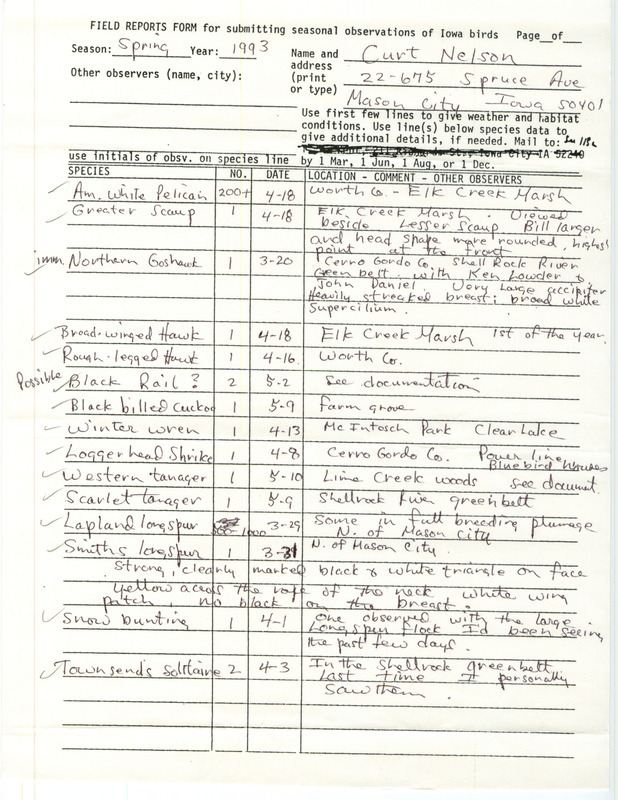 FIELD REPORTS FORM for submitting seasonal observations of Iowa birds Page__of___
Season: Spring Year: 1993 Name and Curt Nelson
address 22-675 Spruce Ave
Other observers (name, city): (print
or type) Mason City Iowa 50401
Use first few lines to give weather and habitat
conditions. Use line(s) below species data to
give additional details, if needed. Mail to:
St., Iowa City IA 52240
use initials of obsv. on species line by 1 Mar, 1 Jun, 1 Aug, or 1 Dec.
SPECIES NO. DATE LOCATION - COMMENT - OTHER OBSERVERS
Am. White Pelican 200+ 4-18 Worth Co. - Elk Creek Marsh
Greater Scaup 1 4-18 Elk Creek Marsh. Viewed
beside Lesser Scaup Bill larger
and head shape more rounded, highest
point at the front
imm. Northern Goshawk 1 3-20 Cerro Gordo Co. Shell Rock River
Greenbelt with Ken Lowder &
John Daniel. Very large accipiter
Heavily streaked breast; broad white
supercilium.
Broad-winged Hawk 1 4-18 Elk Creek Marsh 1st of the year.
Rough-legged Hawk 1 4-16 Worth Co.
Possible Black Rail? 2 5-2 See documentation
Black billed cuckoo 1 5-9 farm grove
Winter wren 1 4-13 McIntosch Park Clear Lake
Loggerhead Shrike 1 4-8 Cerro Gordo Co. Power line
Bluebird houses
Western tanager 1 5-10 Lime Creek woods see document.
Scarlet tanager 1 5-9 Shellrock river greenbelt
Lapland longspur 1000 3-29 Some in full breeding plumage
N. of Mason city
Smiths longspur 1 3-31 N. of Mason City.
Strong, cleanly marked black & white triangle on face
yellow across the nape of the neck white wing
patch. no black on the breast.
Snow bunting 1 4-1 one observed with the large
Longspur flock I'd been seeing
the past few days.
Townsend's solitaire 2 4-3 In the shellrock greenbelt
Last time I personally
saw them.